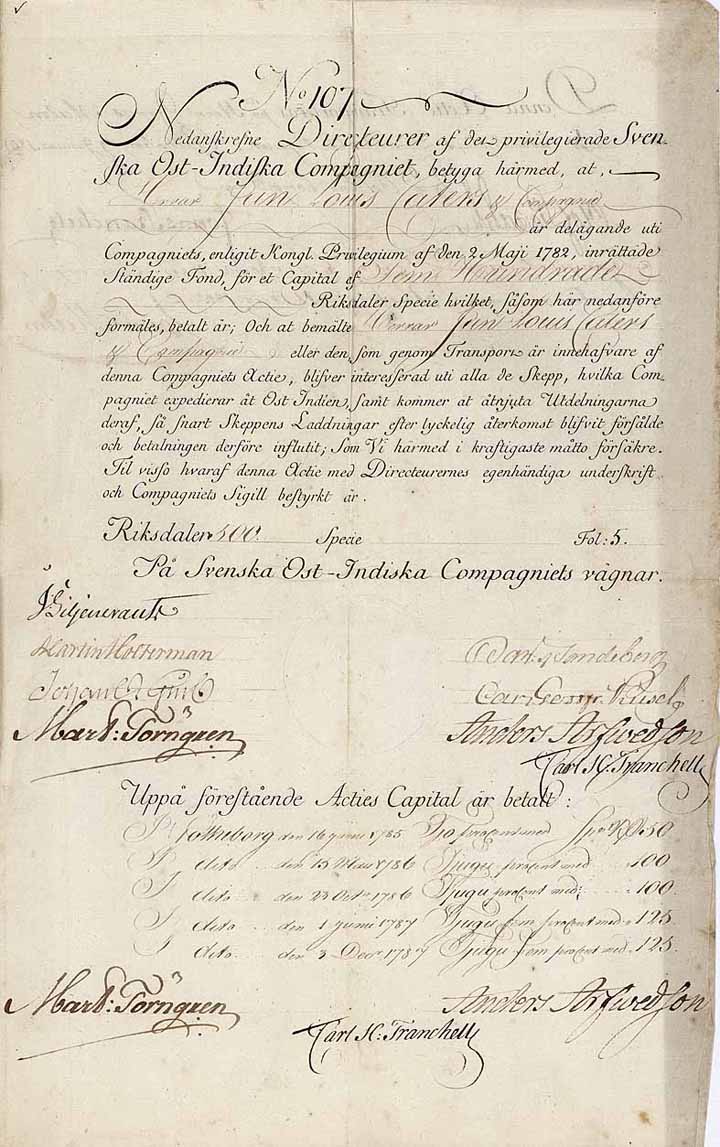 No 107
Nedanskrefne Directeurer af den privilegierade Sven-
ska Ost-Indiska Compagniet, betyga härmed, at,
Herrar Jean Louis Caters & Compagnie
är delägande uti
Compagniets, enligit Kongl. Privilegium af den 2 Maji 1782, inrättade
Ständige Fond, för et Capital af Fem Hundrade
Riksdaler Specie hvilket, såsom här nedanföre
förmäles, betalt är; Och at bemälte Herrar Jean Louis Caters
& Compagnie eller den, som genom Transport är innehafvare af
denna Compagniets Actie, blifver interesserad uti alla de Skepp, hvilka Com-
pagniet expedierar åt Ost Indien, samt kommer at åtnjuta Utdelningarna
deraf, så snart Skeppens Laddningar efter lyckelig återkomst blifvit försålde
och betalningen derföre influtit; Som Vi härmed i kraftigaste måtto försäkre.
Til visso hvaraf denna Actie med Directeurernes egenhändiga underskrift
och Compagniets Sigill bestyrkt är.
Riksdaler 500 Specie Fol: 5.
På Svenska Ost-Indiska Compagniets vägnar.
Martin Holterman
Mart: Törngren Anders Arfwedson
Carl H: Tranchell
Uppå förestående Acties Capital är betalt:
Götheborg den 16 Junii 1785 Tio procent med Spec Rd 50
dito den 15 1786 Tjugu procent med 100
dito den 23 Octr 1786 Tjugu procent med: 100
dito den 1 Junii 1787 Tjugu fem procent med 125
dito den 3 Decr 1787 Tjugu fem procent med 125
Mart: Törngren Anders Arfwedson
Carl H: Tranchell